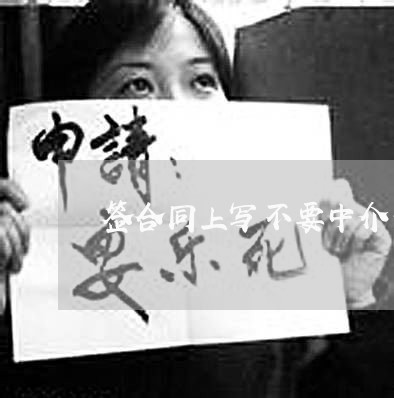 申請：
签合同上写不要中介
安乐死